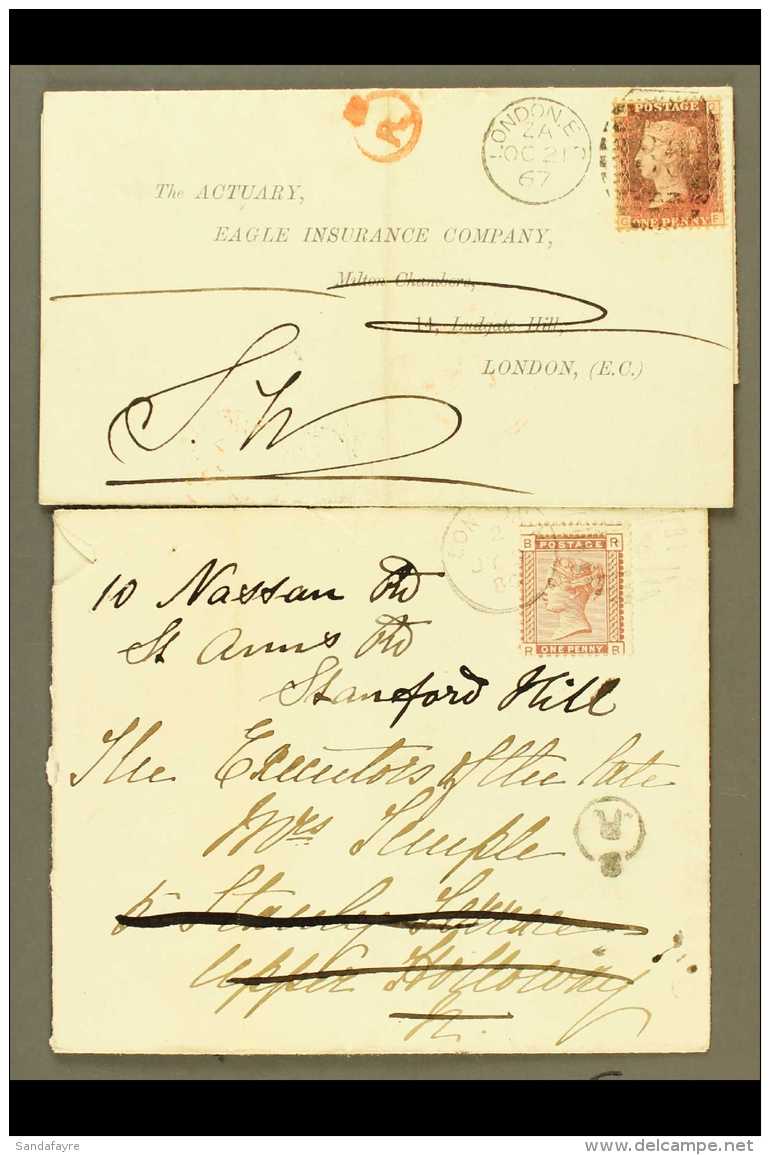 LONDON.E.C
ZA
OC 21
67
POSTAGE
ONE PENNY
R
The ACTUARY,
EAGLE INSURANCE COMPANY,
Milton Chambers,
14, Ludgate Hill,
LONDON, (E.C.)
S.W
B POSTAGE R
R ONE PENNY B
10 Nassan Rd
St Anns Rd
Stamford Hill
The Executors of the late
Mrs Temple
5 Stanly Terrace
Upper Holloway
N.
R
Sandafayre
www.delcampe.net